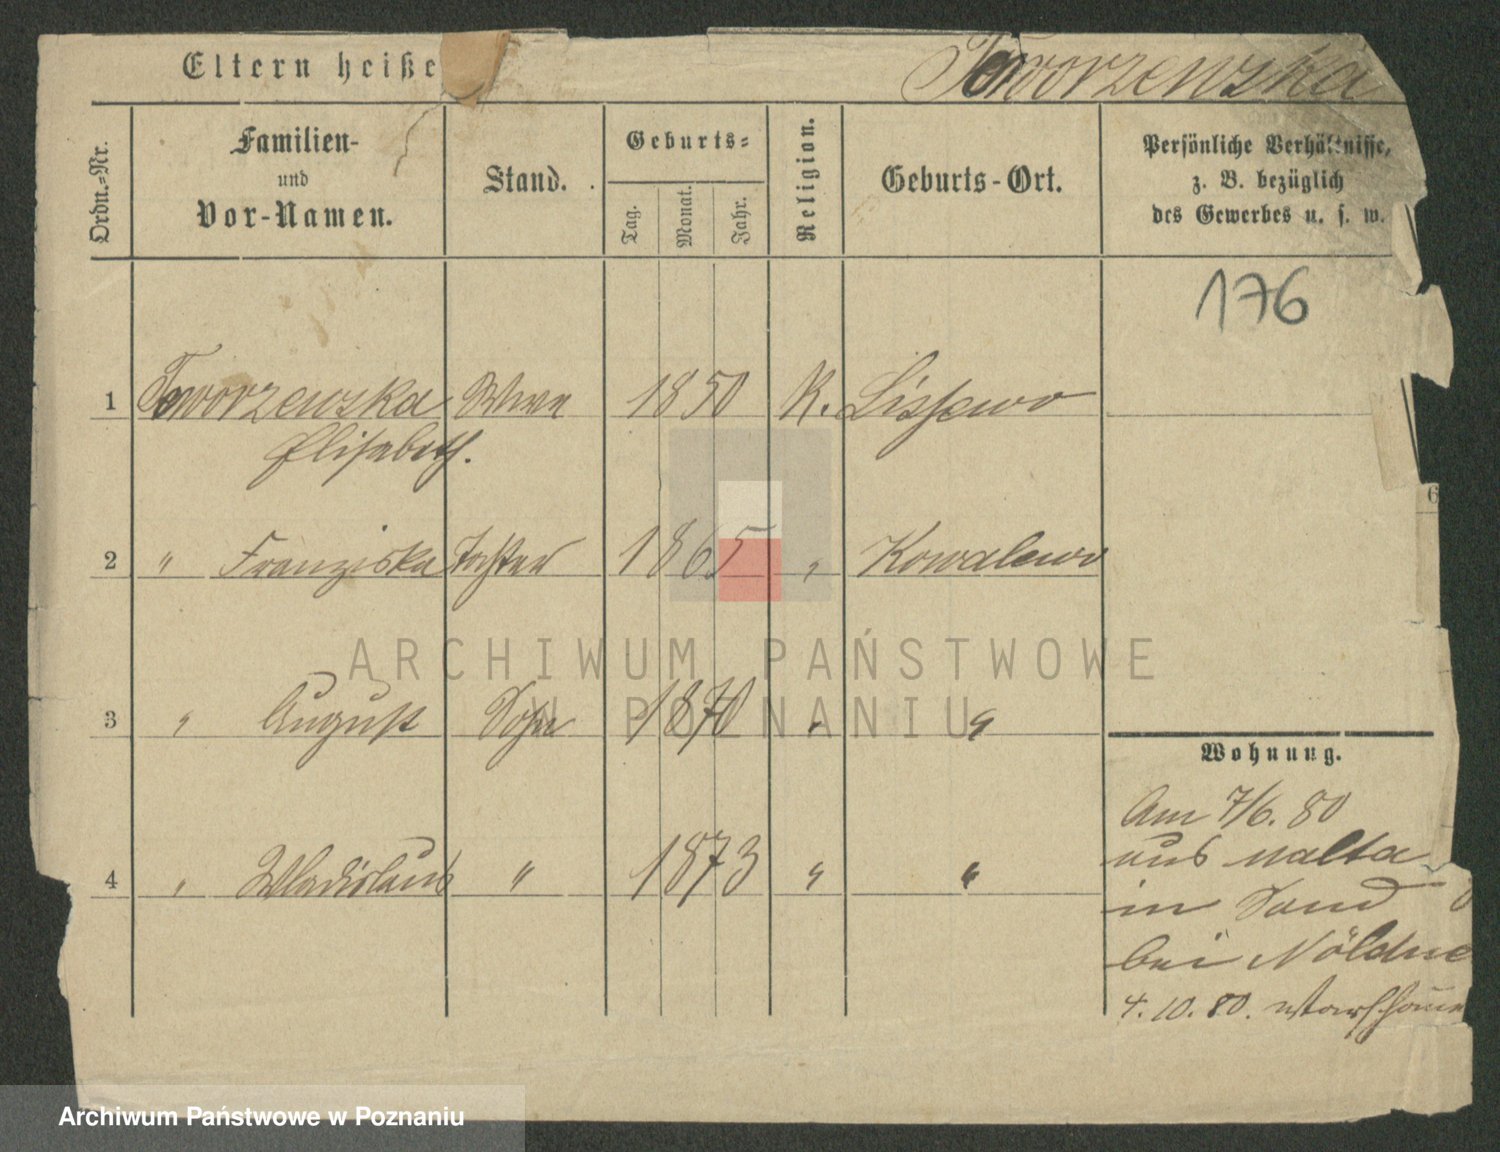 Eltern heiße
Jaworzewska
Ordn.=Nr.
Familien-
und
Vor-Namen.
Stand.
Geburts=
Tag.
Monat.
Jahr.
Religion.
Geburts-Ort.
Persönliche Verhältnisse,
z. B. bezüglich
des Gewerbes u. s. w.
176
1 Jaworzewska Wwe 1850 K. Lissewo
Elisabeth.
2 " Franziska Tochter 1865 " Kowalewo
3 " August Sohn 1870 " "
4 " Wladislaus " 1873 " "
6
Wohnung.
Am 7/6. 80
aus Malta
in Sand
bei Nöldne
4.10.80.
ARCHIWUM PAŃSTWOWE
W POZNANIU
Archiwum Państwowe w Poznaniu